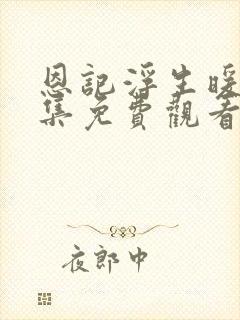 恩記浮生暖
集免費觀看
夜郎中